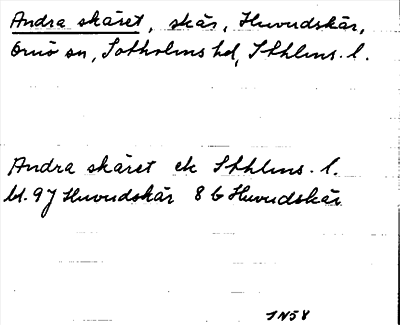 Andra skäret, skär, Huvudskär,
Ornö sn, Sotholms hd, Sthlms. l.
Andra skäret ek Sthlms. l.
bl. 97 Huvudskär 8 b Huvudskär
IN58